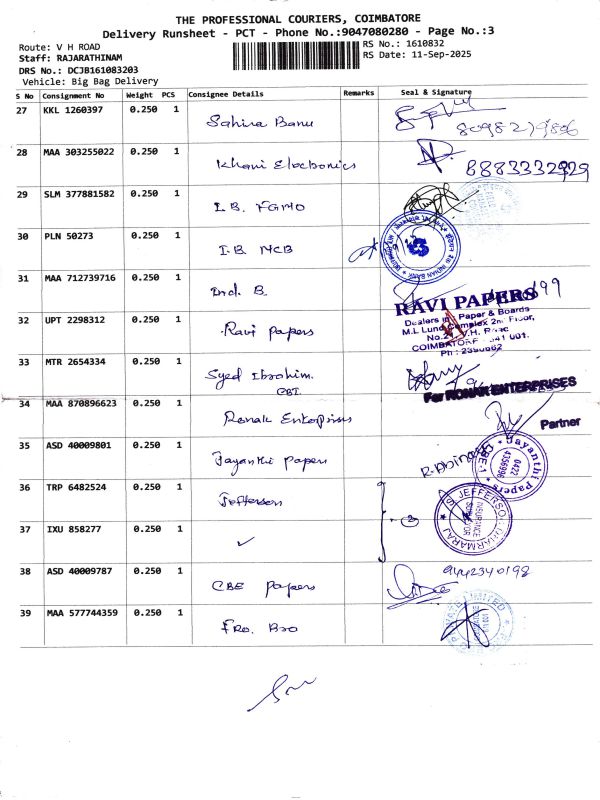 THE PROFESSIONAL COURIERS, COIMBATORE
Delivery Runsheet - PCT - Phone No.:9047080280 - Page No.:3
Route: V H ROAD
RS No.: 1610832
Staff: RAJARATHINAM
RS Date: 11-Sep-2025
DRS No.: DCJB161083203
Vehicle: Big Bag Delivery
S No Consignment No Weight PCS Consignee Details Remarks Seal & Signature
27 KKL 1260397 0.250 1 Sahira Banu
28 MAA 303255022 0.250 1 Khani Electronics 8883332929
29 SLM 377881582 0.250 1 I.B. FGMO
30 PLN 50273 0.250 1 I.B. MCB
INDIAN BANK
31 MAA 712739716 0.250 1 B.
RAVI PAPERS
Dealers in Paper & Boards
M.L Lund Complex 2nd Floor,
No.2 V.H. Road
COIMBATORE 641 001.
Ph : 2390662
32 UPT 2298312 0.250 1 Ravi papers
33 MTR 2654334 0.250 1 Syed Ibrahim.
CBI.
For RONAK ENTERPRISES
34 MAA 870896623 0.250 1 Ronak Enterprises
Partner
35 ASD 40009801 0.250 1 Jayanthi papers
Jayanthi Papers
CBE-1
0422
4356996
36 TRP 6482524 0.250 1 Jefferson
S. JEFFERSON DHARMARAJ
INSURANCE
37 IXU 858277 0.250 1 ✓ 3
38 ASD 40009787 0.250 1 CBE papers 9442340198
39 MAA 577744359 0.250 1 Fro. Bro
LIMITED